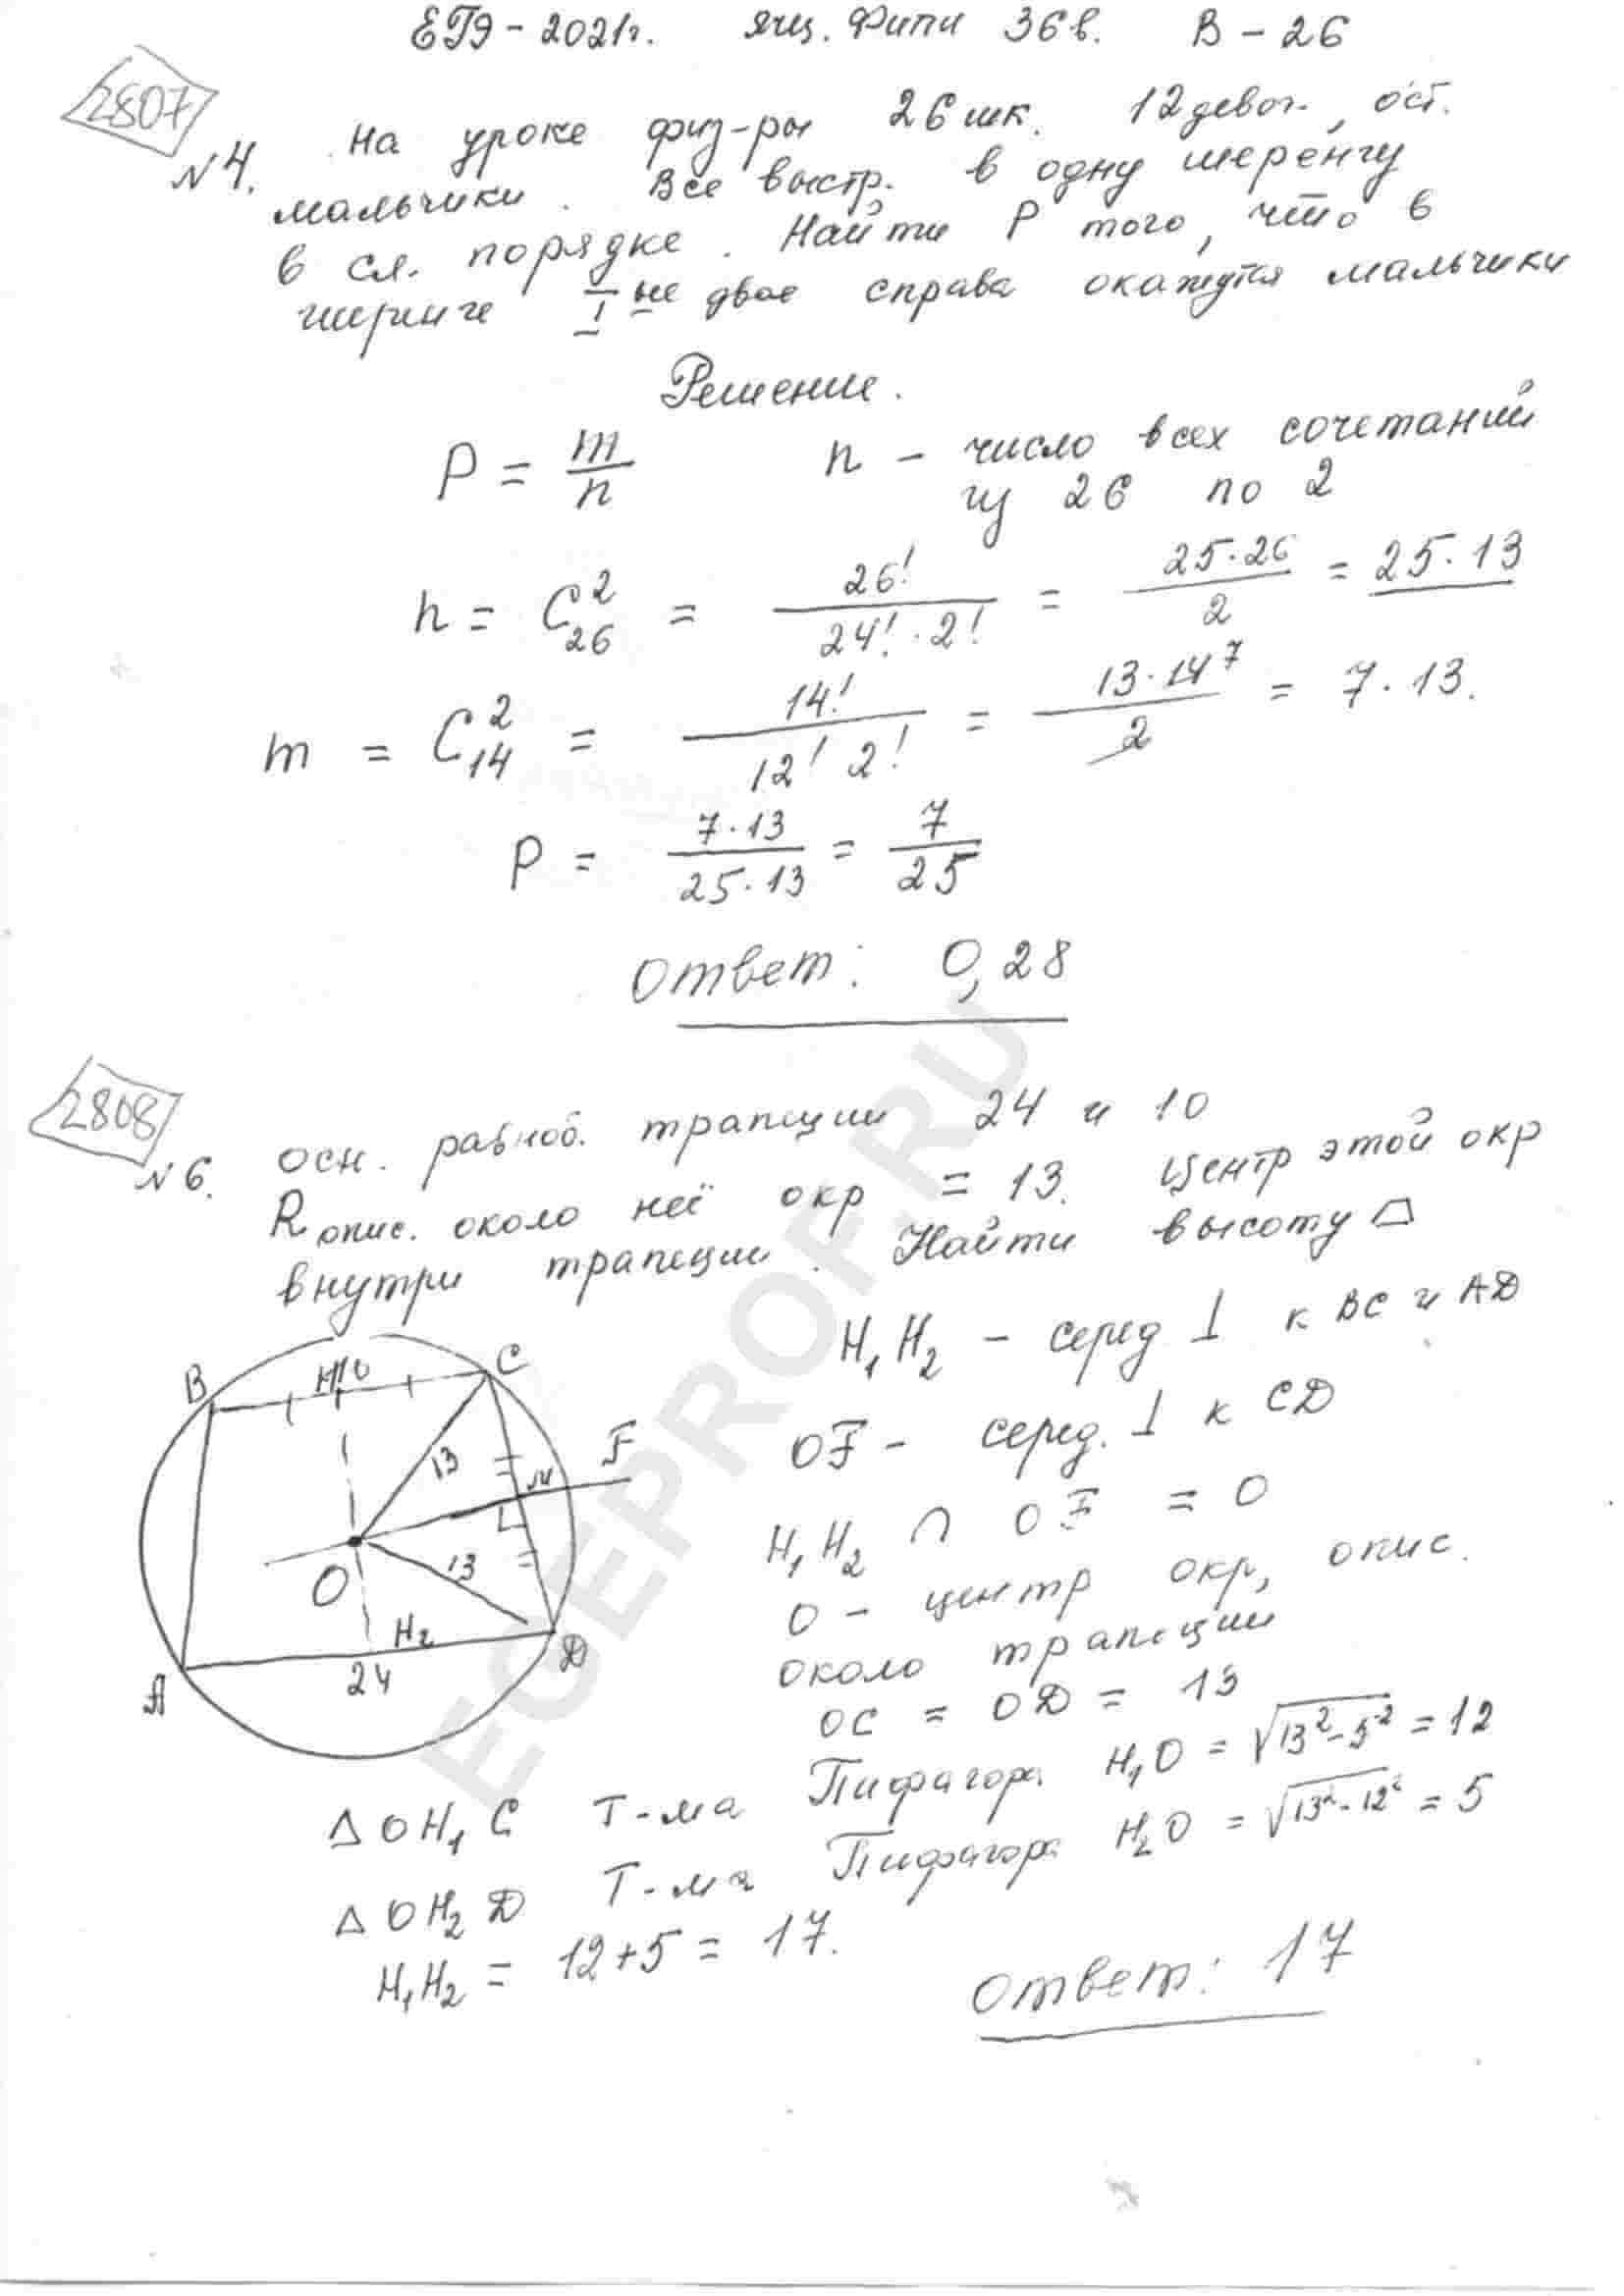 ЕГЭ - 2021г. ящ. Фипи 36в. В - 26
2807
№4. На уроке физ-ры 26 шк. 12 девоч., ост.
мальчики. Все выстр. в одну шеренгу
в сл. порядке. Найти P того, что в
шеринге I ые двое справа окажутся мальчики
Решение.
P = m/n n - число всех сочетаний
из 26 по 2
n = C²₂₆ = 26!/(24! · 2!) = 25·26/2 = 25·13
m = C²₁₄ = 14!/(12! 2!) = 13·14⁷/2 = 7·13.
P = 7·13/25·13 = 7/25
Ответ: 0,28
2808
№6. Осн. равноб. трапеции 24 и 10
R опис. около неё окр = 13. Центр этой окр
внутри трапеции. Найти высоту
H₁H₂ - серед ⊥ к BC и AD
OF - серед. ⊥ к CD
H₁H₂ ∩ OF = O
O - центр окр, опис.
около трапеции
OC = OD = 13
B H₁ 10 C
13 M F
O 13
A 24 H₂ D
△OH₁C Т-ма Пифагора H₁O = √13²-5² = 12
△OH₂D Т-ма Пифагора H₂O = √13²-12² = 5
H₁H₂ = 12+5 = 17.
Ответ: 17
EGEPROF.RU